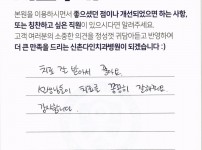 본원을 이용하시면서 좋으셨던 점이나 개선되었으면 하는 사항,
또는 칭찬하고 싶은 직원이 있으시다면 알려주세요.
고객 여러분의 소중한 의견을 정성껏 귀담아듣고 반영하여
더 큰 만족을 드리는 신촌다인치과병원이 되겠습니다 :)
치료 잘 받아서 좋아요.
선생님들이 치료를 꼼꼼히 잘해주셔서
감사합니다.